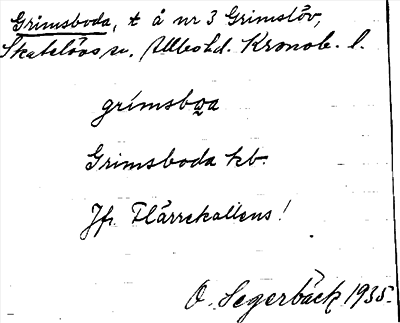 Grimsboda, t å nr 3 Grimslöv,
Skatelövs sn. Allbo hd. Kronob. l.
grimsboa
Grimsboda kb.
Jfr Flärrekallens!
O. Segerbäck 1935.